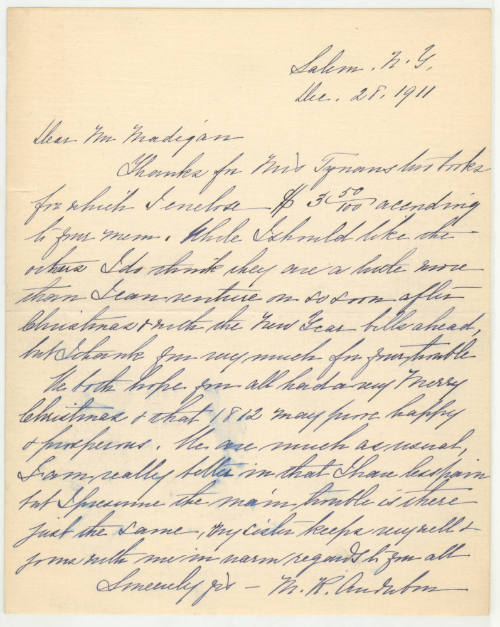 Salem. N. Y.
Dec. 28. 1911
Dear Mr Madigan
Thanks for Mrs Tynans two books
for which I enclose $ 3 50/100 according
to your mem. While I should like the
others I do think they are a little more
than I can venture on so soon after
Christmas & with the New Year bills ahead,
but I thank you very much for your trouble
We both hope you all had a very Merry
Christmas & that 1812 may prove happy
& prosperous. We are much as usual,
I am really better in that I have less pain
but I presume the main trouble is there
just the same, my sister keeps very well &
joins with me in warm regards to you all
Sincerely yrs - M. R. Audubon